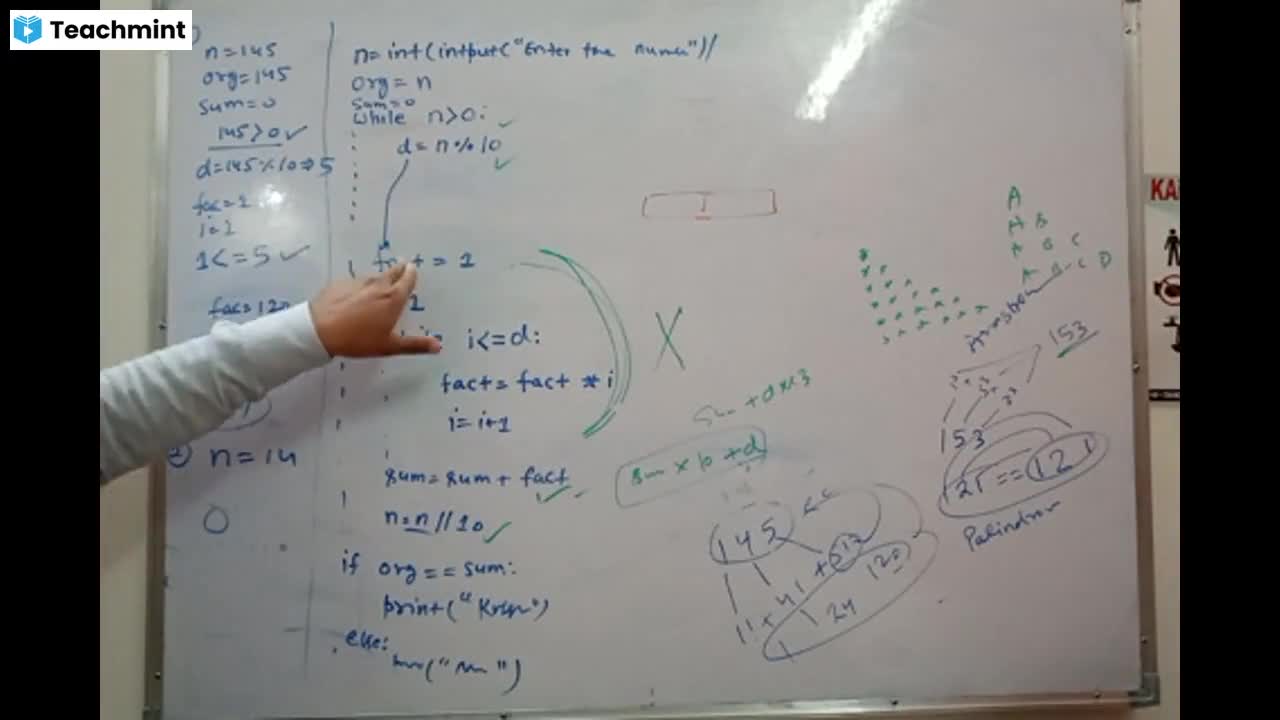 Teachmint
n=145
org=145
sum=0
145>0 ✓
d=145%10⇒5
fac=1
i=1
1<=5 ✓
fac=120
② n=14
0
n=int(intput("Enter the numer")
org=n
sum=0
while n>0:
d=n%10
= 1
i<=d:
fact=fact *i
i=i+1
sum=sum+ fact
n=n//10
if org==sum:
print("
else:
("
I
X
sum × 10 + d
145
120
1 24
A
A B
A B C
A B C D
Armstrong
153
153
121==121
Palindrom
KA